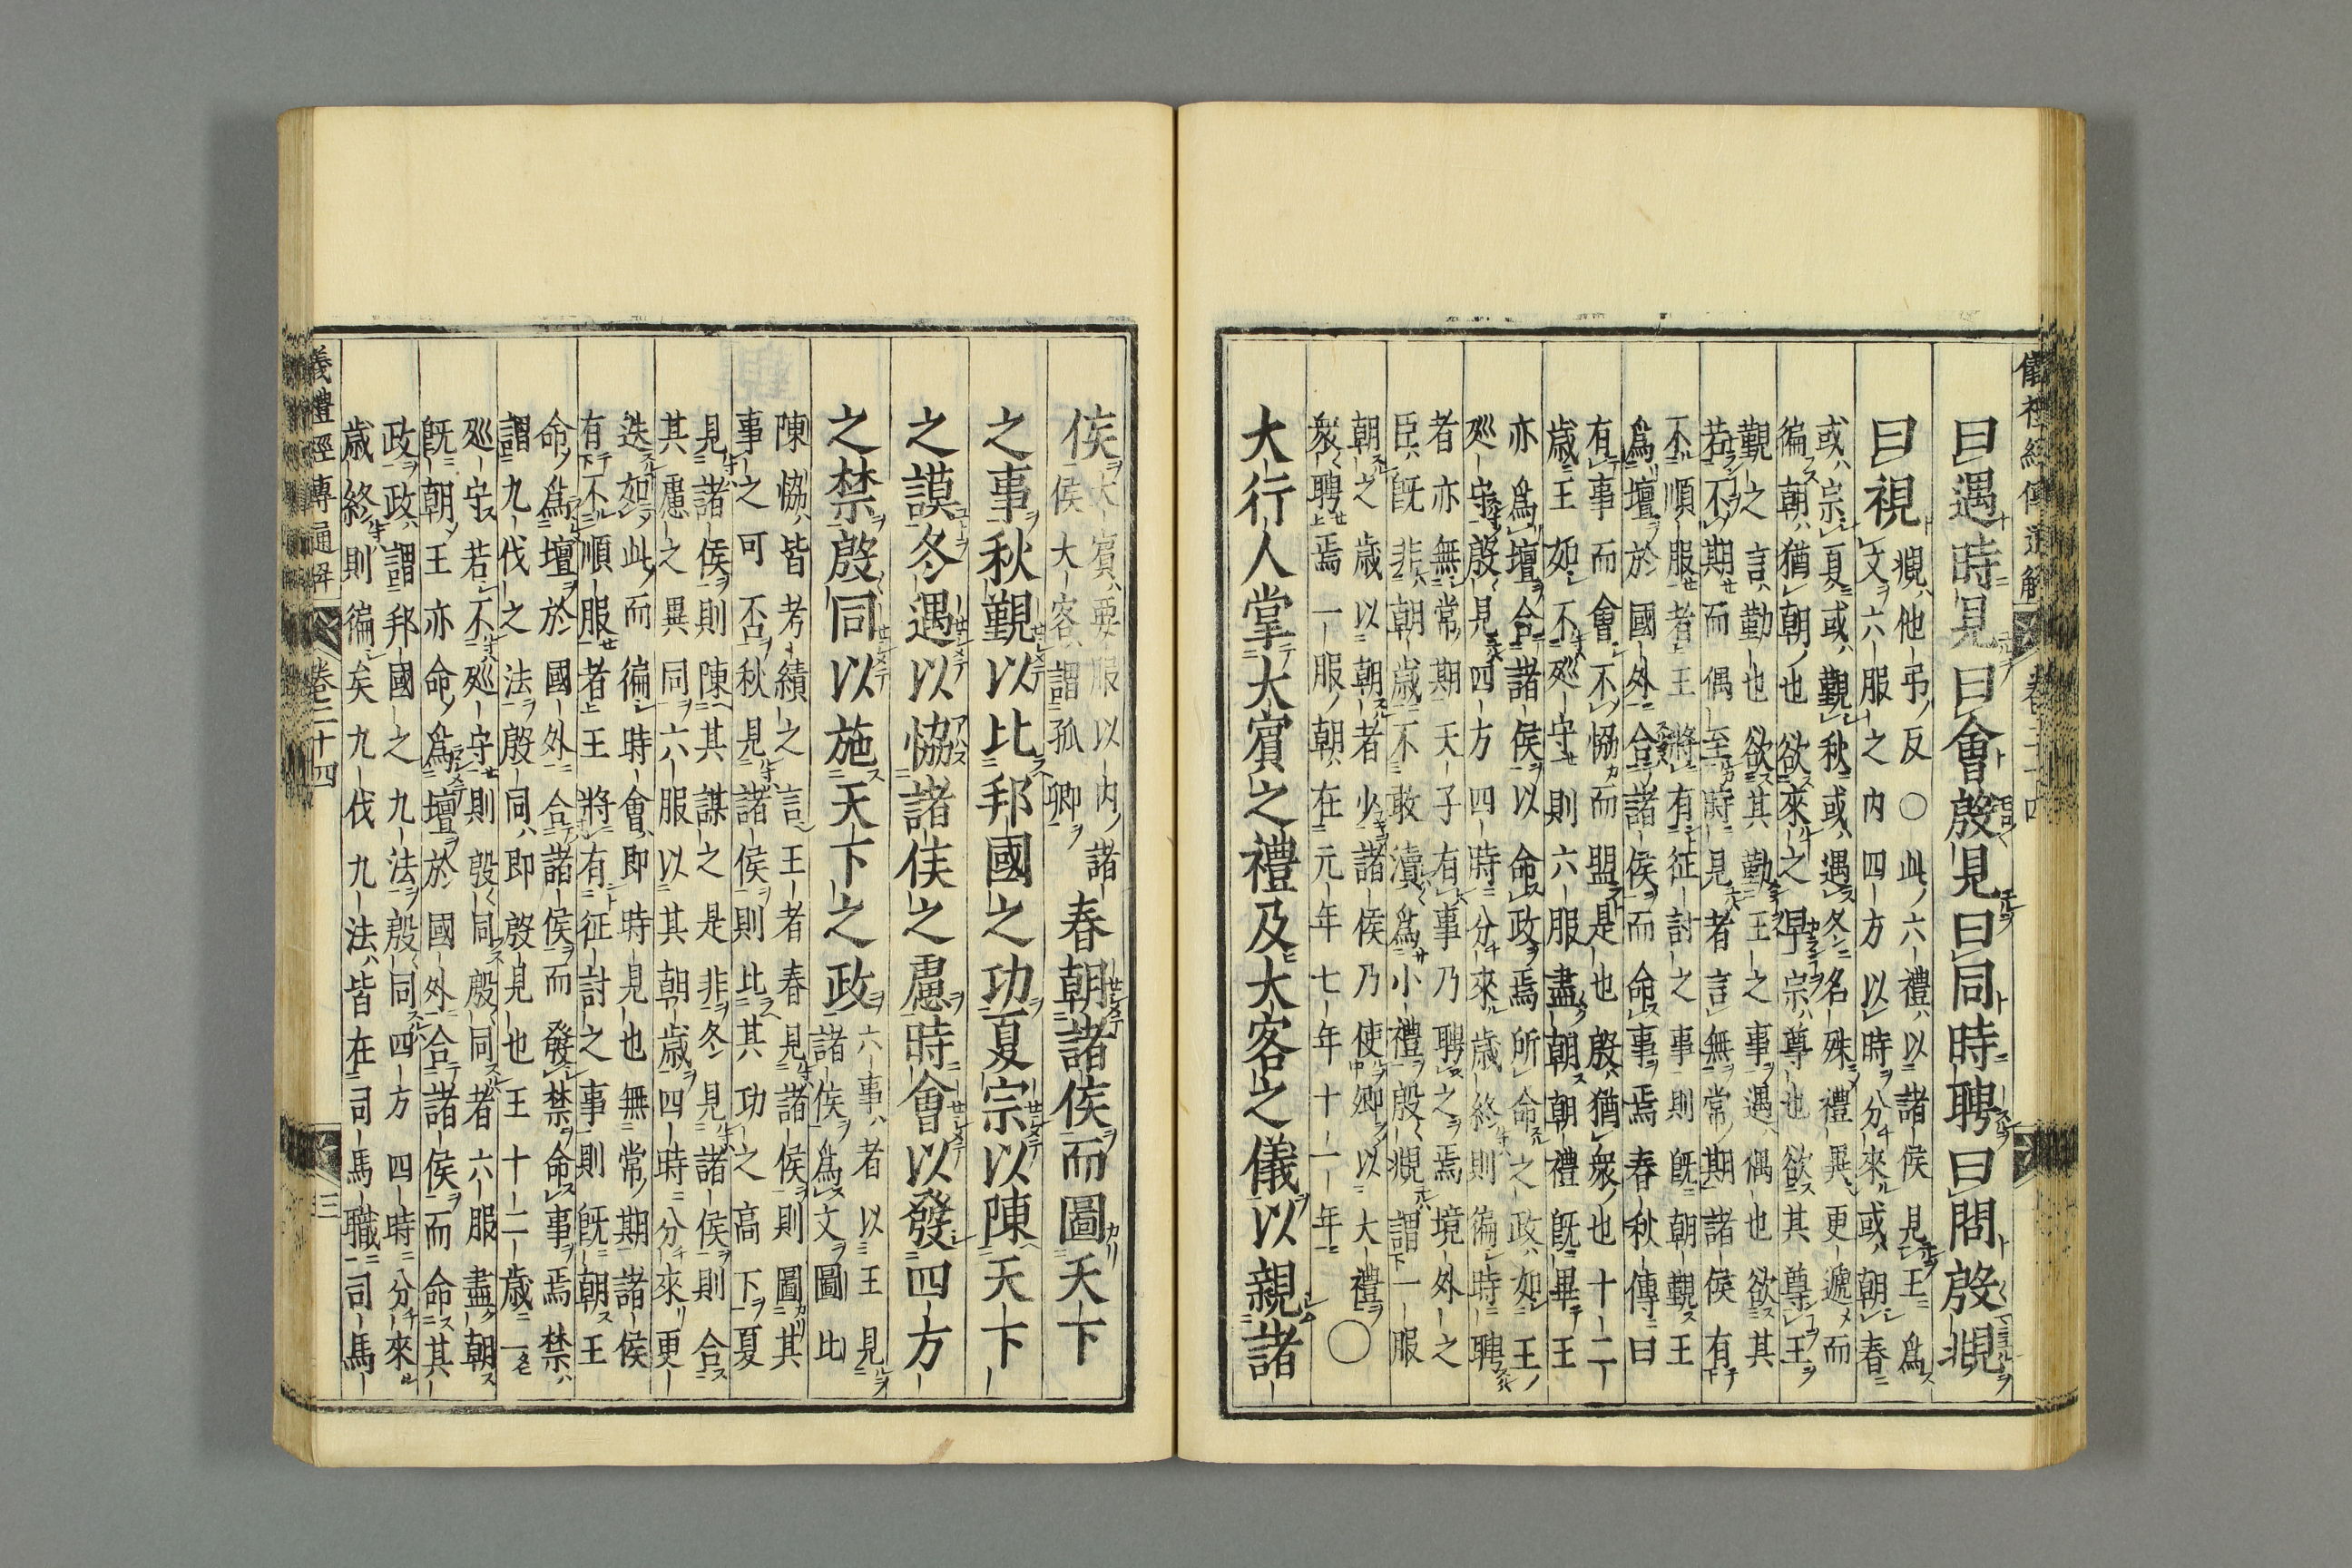 儀禮經傳通解 卷二十四
曰遇時見曰會殷見曰同時聘曰問殷覜
曰視
覜他弔反○此六禮以諸侯見王爲
文六服之内四方以時分來或朝春
或宗夏或覲秋或遇冬名殊禮異更遞而
徧朝猶朝也欲來之早宗尊也欲其尊王
覲之言勤也欲其勤王之事遇偶也欲其
若不期而偶至時見者言無常期諸侯有
不順服者王將有征討之事則旣朝覲王
爲壇於國外合諸侯而命事焉春秋傳曰
有事而會不恊而盟是也殷猶衆也十二
歳王如不廵守則六服盡朝朝禮旣畢王
亦爲壇合諸侯以命政焉所命之政如王
廵守殷見四方四時分來歳終則徧時聘
者亦無常期天子有事乃聘之焉境外之
臣旣非朝歳不敢瀆爲小禮殷覜謂一服
朝之歳以朝者少諸侯乃使卿以大禮
衆聘焉一服朝在元年七年十一年○
大行人掌大賓之禮及大客之儀以親諸
侯
大賓要服以内諸
侯大客謂孤卿
春朝諸侯而圖天下
之事秋覲以比邦國之功夏宗以陳天下
之謨冬遇以恊諸侯之慮時會以發四方
之禁殷同以施天下之政
六事者以王見
諸侯爲文圖比
陳恊皆考績之言王者春見諸侯則圖其
事之可否秋見諸侯則比其功之高下夏
見諸侯則陳其謀之是非冬見諸侯則合
其慮之異同六服以其朝歳四時分來更
迭如此而徧時會即時見也無常期諸侯
有不順服者王將有征討之事則旣朝王
命爲壇於國外合諸侯而發禁命事焉禁
謂九伐之法殷同即殷見也王十二歳一
廵守若不廵守則殷同殷同者六服盡朝
旣朝王亦命爲壇於國外合諸侯而命其
政政謂邦國之九法殷同四方四時分來
歳終則徧矣九伐九法皆在司馬職司馬
儀禮經傳通解 卷二十四 三